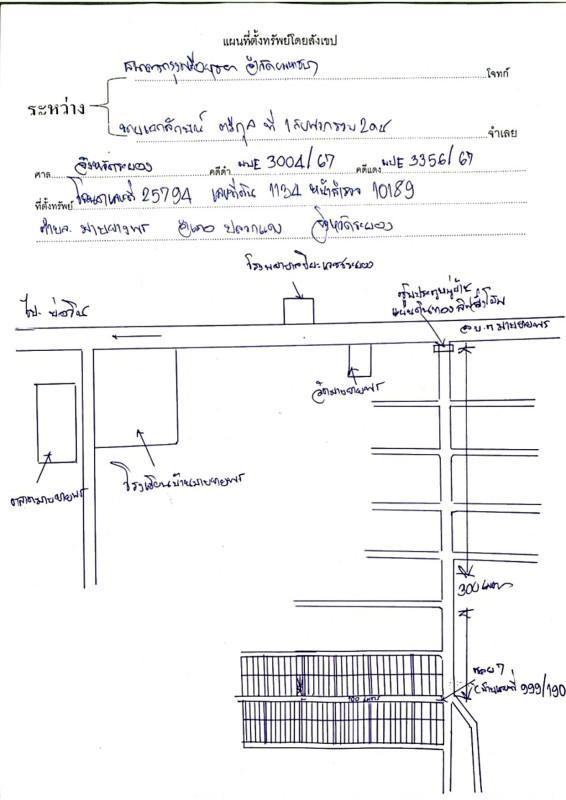 แผนที่ตั้งทรัพย์โดยสังเขป
ธนาคารกรุงศรีอยุธยา จำกัด (มหาชน) โจทก์
ระหว่าง
ที่ 1 กับพวกรวม 2 คน จำเลย
ศาล จังหวัดระยอง คดีดำ ผบE 3004/67 คดีแดง ผบE 3356/67
ที่ตั้งทรัพย์ โฉนดเลขที่ 25794 เลขที่ดิน 1134 หน้าสำรวจ 10189
ตำบล มาบยางพร อำเภอ ปลวกแดง จังหวัดระยอง
ไป บ่อวิน
อบต มาบยางพร
วัดมาบยางพร
ตลาดมาบยางพร
โรงเรียนบ้านมาบยางพร
300 เมตร
ซอย 7
(บ้านเลขที่ 999/190
100 เมตร